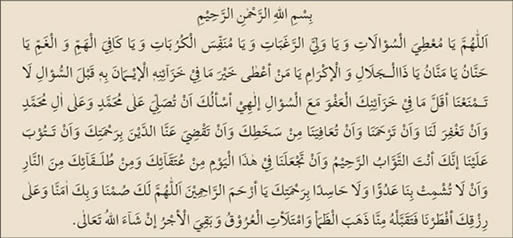 بِسْمِ اللهِ الرَّحْمٰنِ الرَّحِيْمِ
اَللّٰهُمَّ يَا مُعْطِيَ السُؤَالَاتِ وَ يَا وَلِيَّ الرَّغَبَاتِ وَ يَا مُنَفِّسَ الْكُرُبَاتِ وَ يَا كَافِيَ الْهَمِّ وَ الْغَمِّ يَا
حَنَّانُ يَا مَنَّانُ يَا ذَاالْجَلَالِ وَ الْاِكْرَامِ يَا مَنْ أَعْطٰى خَيْرَ مَا فِيْ خَزَآئِنِهِ الْاِيْمَانَ بِهِ قَبْلَ السُّؤَالِ لَا
تَمْنَعْنَا أَقَلَّ مَا فِيْ خَزَآئِنِكَ الْعَفْوَ مَعَ السُؤَالِ اِلٰهِيْ أَسْأَلُكَ أَنْ تُصَلِّيَ عَلٰى مُحَمَّدٍ وَعَلٰى اٰلِ مُحَمَّدٍ
وَاَنْ تَغْفِرَ لَنَا وَاَنْ تَرْحَمَنَا وَاَنْ تُعَافِيَنَا مِنْ سَخَطِكَ وَاَنْ تَقْضِيَ عَنَّا الدَّيْنَ بِرَحْمَتِكَ وَاَنْ تَتُوْبَ
عَلَيْنَا اِنَّكَ أَنْتَ التَّوَّابُ الرَّحِيْمُ وَاَنْ تَجْعَلَنَا فِيْ هٰذَا الْيَوْمِ مِنْ عُتَقَآئِكَ وَمِنْ طُلَقَآئِكَ مِنَ النَّارِ
وَاَنْ لَا تُشْمِتْ بِنَا عَدُوًّا وَلَا حَاسِدًا بِرَحْمَتِكَ يَا أَرْحَمَ الرَّاحِمِيْنَ اَللّٰهُمَّ لَكَ صُمْنَا وَبِكَ اٰمَنَّا وَعَلٰى
رِزْقِكَ أَفْطَرْنَا فَتَقَبَّلْهُ مِنَّا ذَهَبَ الظَّمَأُ وَامْتَلَأَتِ الْعُرُوْقُ وَبَقِيَ الْأَجْرُ اِنْ شَآءَ اللهُ تَعَالٰى.